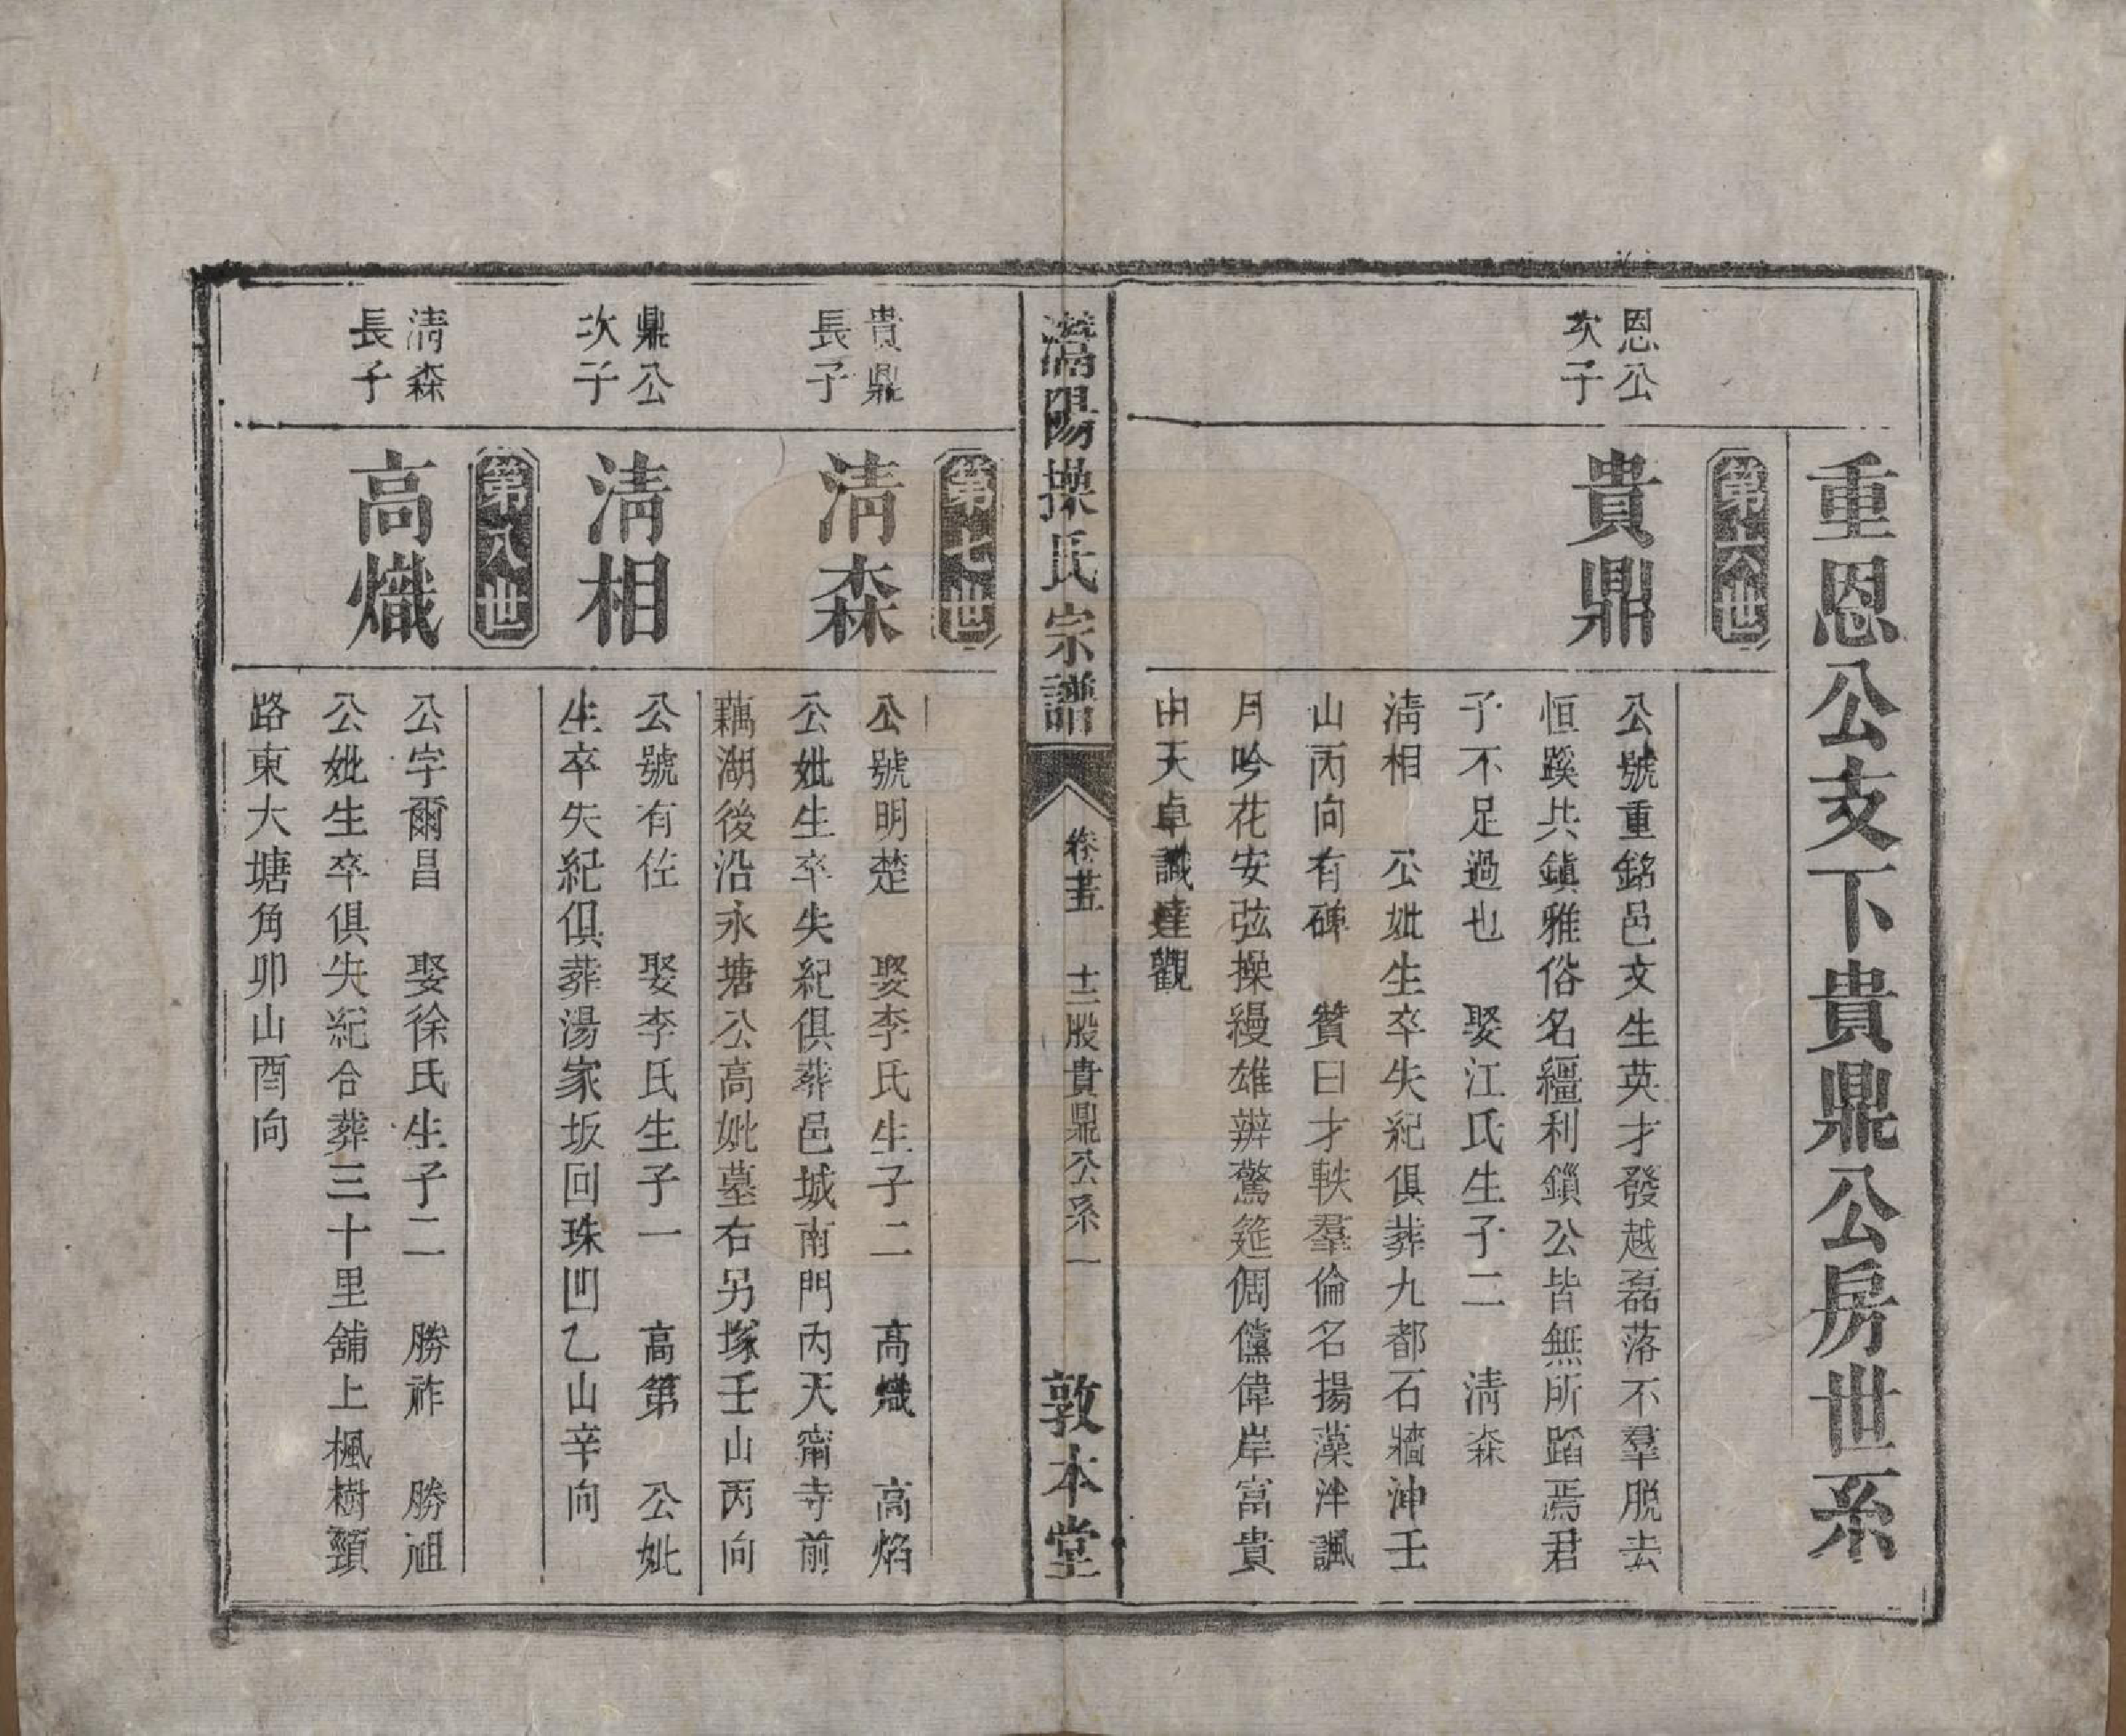 重恩公支下貴鼎公房世系
第六世
恩公
次子
貴鼎
公號重銘邑文生英才發越磊落不羣脫去
恒蹊共鎮雅俗名繮利鎖公皆無所蹈焉君
子不足過也　娶江氏生子二　淸森
淸相　公妣生卒失紀俱葬九都石牆沖壬
山丙向有碑　贊曰才軼羣倫名揚藻泮諷
月吟花安弦操縵雄辨驚筵倜儻偉岸富貴
由天卓識達觀
灊陽操氏宗譜
卷
十二股貴鼎公系一
敦本堂
第七世
貴鼎
長子
淸森
公號明楚　娶李氏生子二　高熾　高焰
公妣生卒失紀俱葬邑城南門內天甯寺前
藕湖後沿永塘公高妣墓右另塚壬山丙向
鼎公
次子
淸相
公號有佐　娶李氏生子一　高第　公妣
生卒失紀俱葬湯家坂回珠凹乙山辛向
第八世
淸森
長子
高熾
公字爾昌　娶徐氏生子二　勝祚　勝祖
公妣生卒俱失紀合葬三十里舖上楓樹頸
路東大塘角卯山酉向